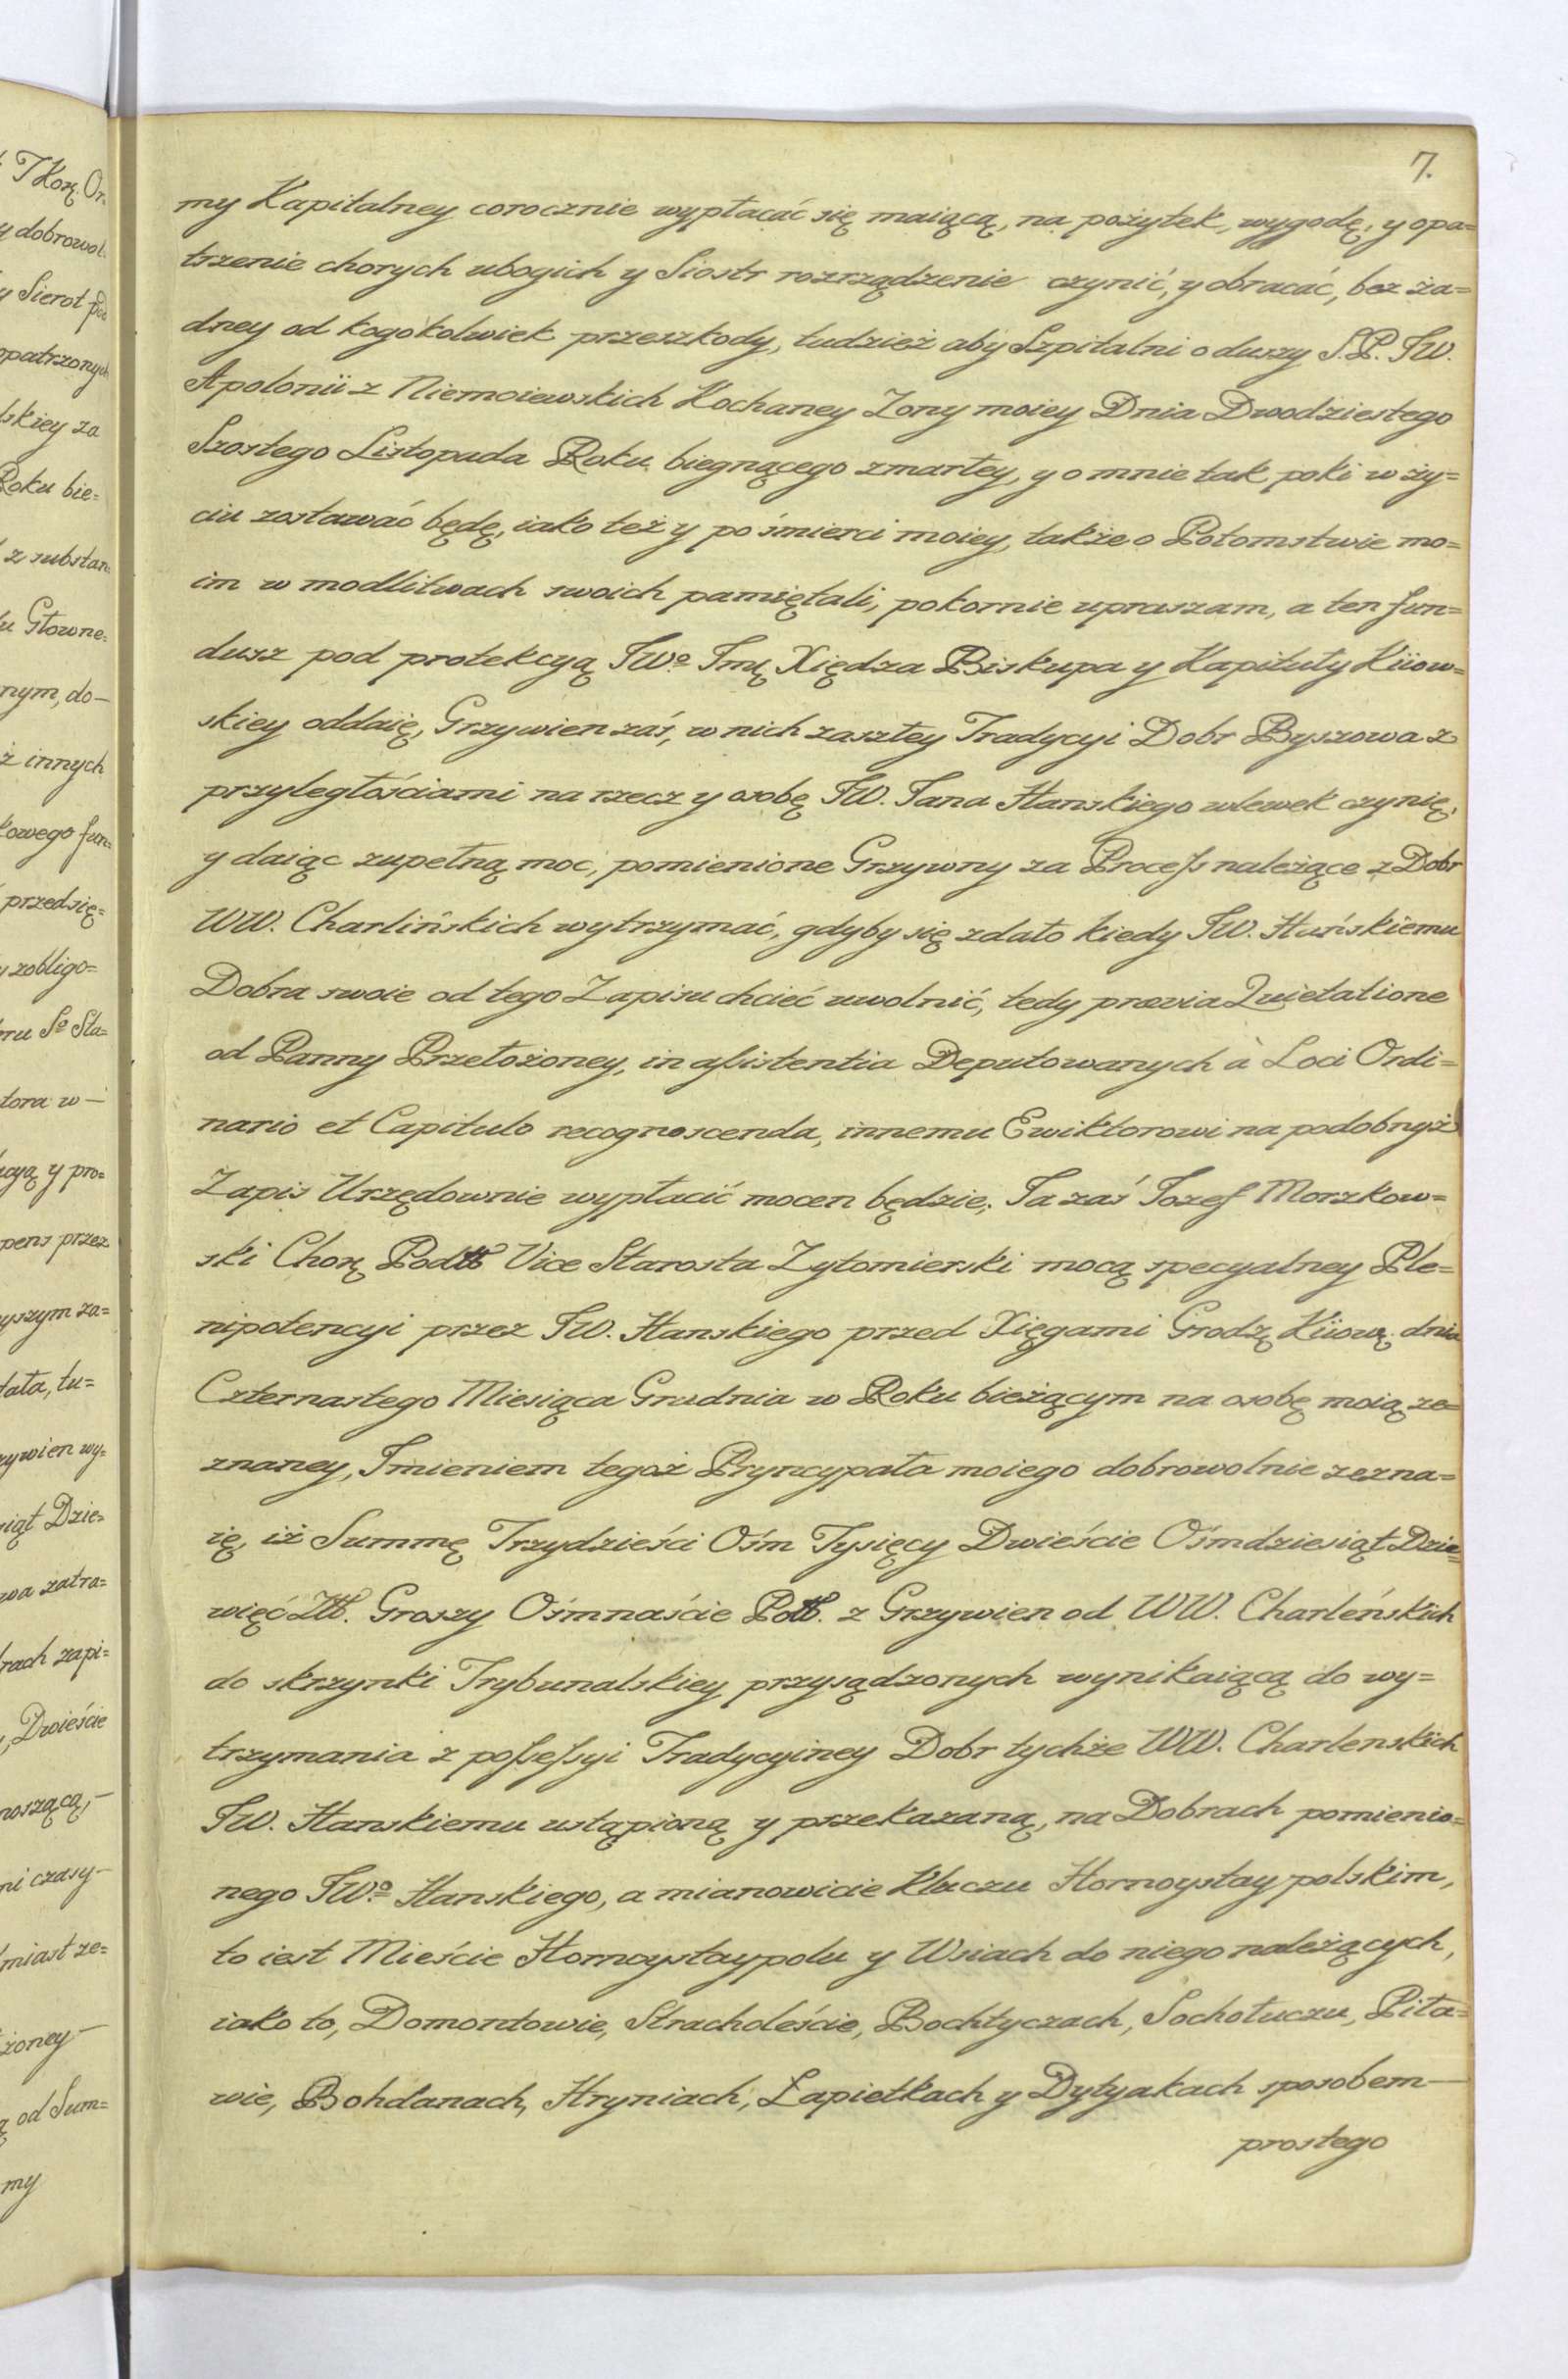 7.
my Kapitalney corocznie wypłacać się maiącą, na pożytek, wygodę, y opa=
trzenie chorych ubogich y Siostr rozrządzenie czynić, y obracać, bez ża=
dney od kogokolwiek przeszkody, tudzież aby Szpitalni o duszy S.P. JW.
Apolonii z Niemoiewskich Kochaney Zony moiey Dnia Dwodziestego
Szostego Listopada Roku biegnącego zmarłey, y o mnie tak poki w ży=
ciu zostawać będę, iako też y po śmierci moiey, także o Potomstwie mo=
im w modlitwach swoich pamiętali, pokornie upraszam, a ten fun=
dusz pod protekcyą JWo Jmę Xiędza Biskupa y Kapituły Kiiow=
skiey oddaię, Grzywien zaś, w nich zaszłey Tradycyi Dobr Byszowa z
przyległościami na rzecz y osobę JW. Jana Hanskiego wlewek czynię,
y daiąc zupełną moc, pomienione Grzywny za Process należące z Dobr
WW. Charlińskich wytrzymać, gdyby się zdało kiedy JW. Hańskiemu
Dobra swoie od tego Zapisu chcieć uwolnić, tedy prævia Quietatione
od Panny Przełożoney, in assistentia Deputowanych à Loci Ordi=
nario et Capitulo recognoscenda, innemu Ewiktorowi na podobnyż
Zapis Urzędownie wypłacić mocen będzie; Ja zaś Jozef Morzkow=
ski Chorą Podtt Vice Starosta Zytomierski mocą specyalney Ple=
nipotencyi przez JW. Hanskiego przed Xięgami Grodz Kiiow. dnia
Czternastego Miesiąca Grudnia w Roku bieżącym na osobę moią ze=
znaney, Jmieniem tegoż Pryncypała moiego dobrowolnie zezna=
ię, iż Summę Trzydzieści Ośm Tysięcy Dwieście Ośmdziesiąt Dzie=
więć Ztt. Groszy Ośmnaście Pott. z Grzywien od WW. Charleńskich
do skrzynki Trybunalskiey przysądzonych wynikaiącą do wy=
trzymania z possessyi Tradycyiney Dobr tychże WW. Charlenskich
JW. Hanskiemu ustąpioną y przekazaną, na Dobrach pomienio=
nego JWo Hanskiego, a mianowicie Kluczu Hornoystaypolskim,
to iest Mieście Hornoystaypolu y Wsiach do niego należących,
iako to, Domontowie, Stracholeście, Bochtyczach, Sochołuczu, Piła=
wie, Bohdanach, Hryniach, Łapietkach y Dytyakach sposobem—
prostego